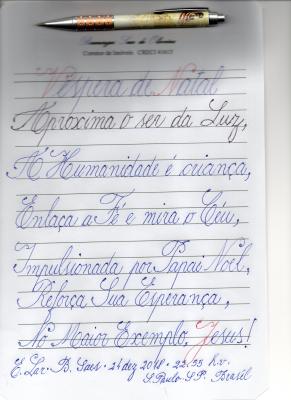 Corretor de Imóveis CRECI
Véspera de Natal
Aproxima o ser da Luz,
A Humanidade é criança,
Enlaça a Fé e mira o Céu,
Impulsionada por Papai Noel,
Reforça Sua Esperança,
No Maior Exemplo, Jesus!
E. Lar. B. Saes - 24 dez 2018 - 22:55 h.v.
S. Paulo S.P. Brasil